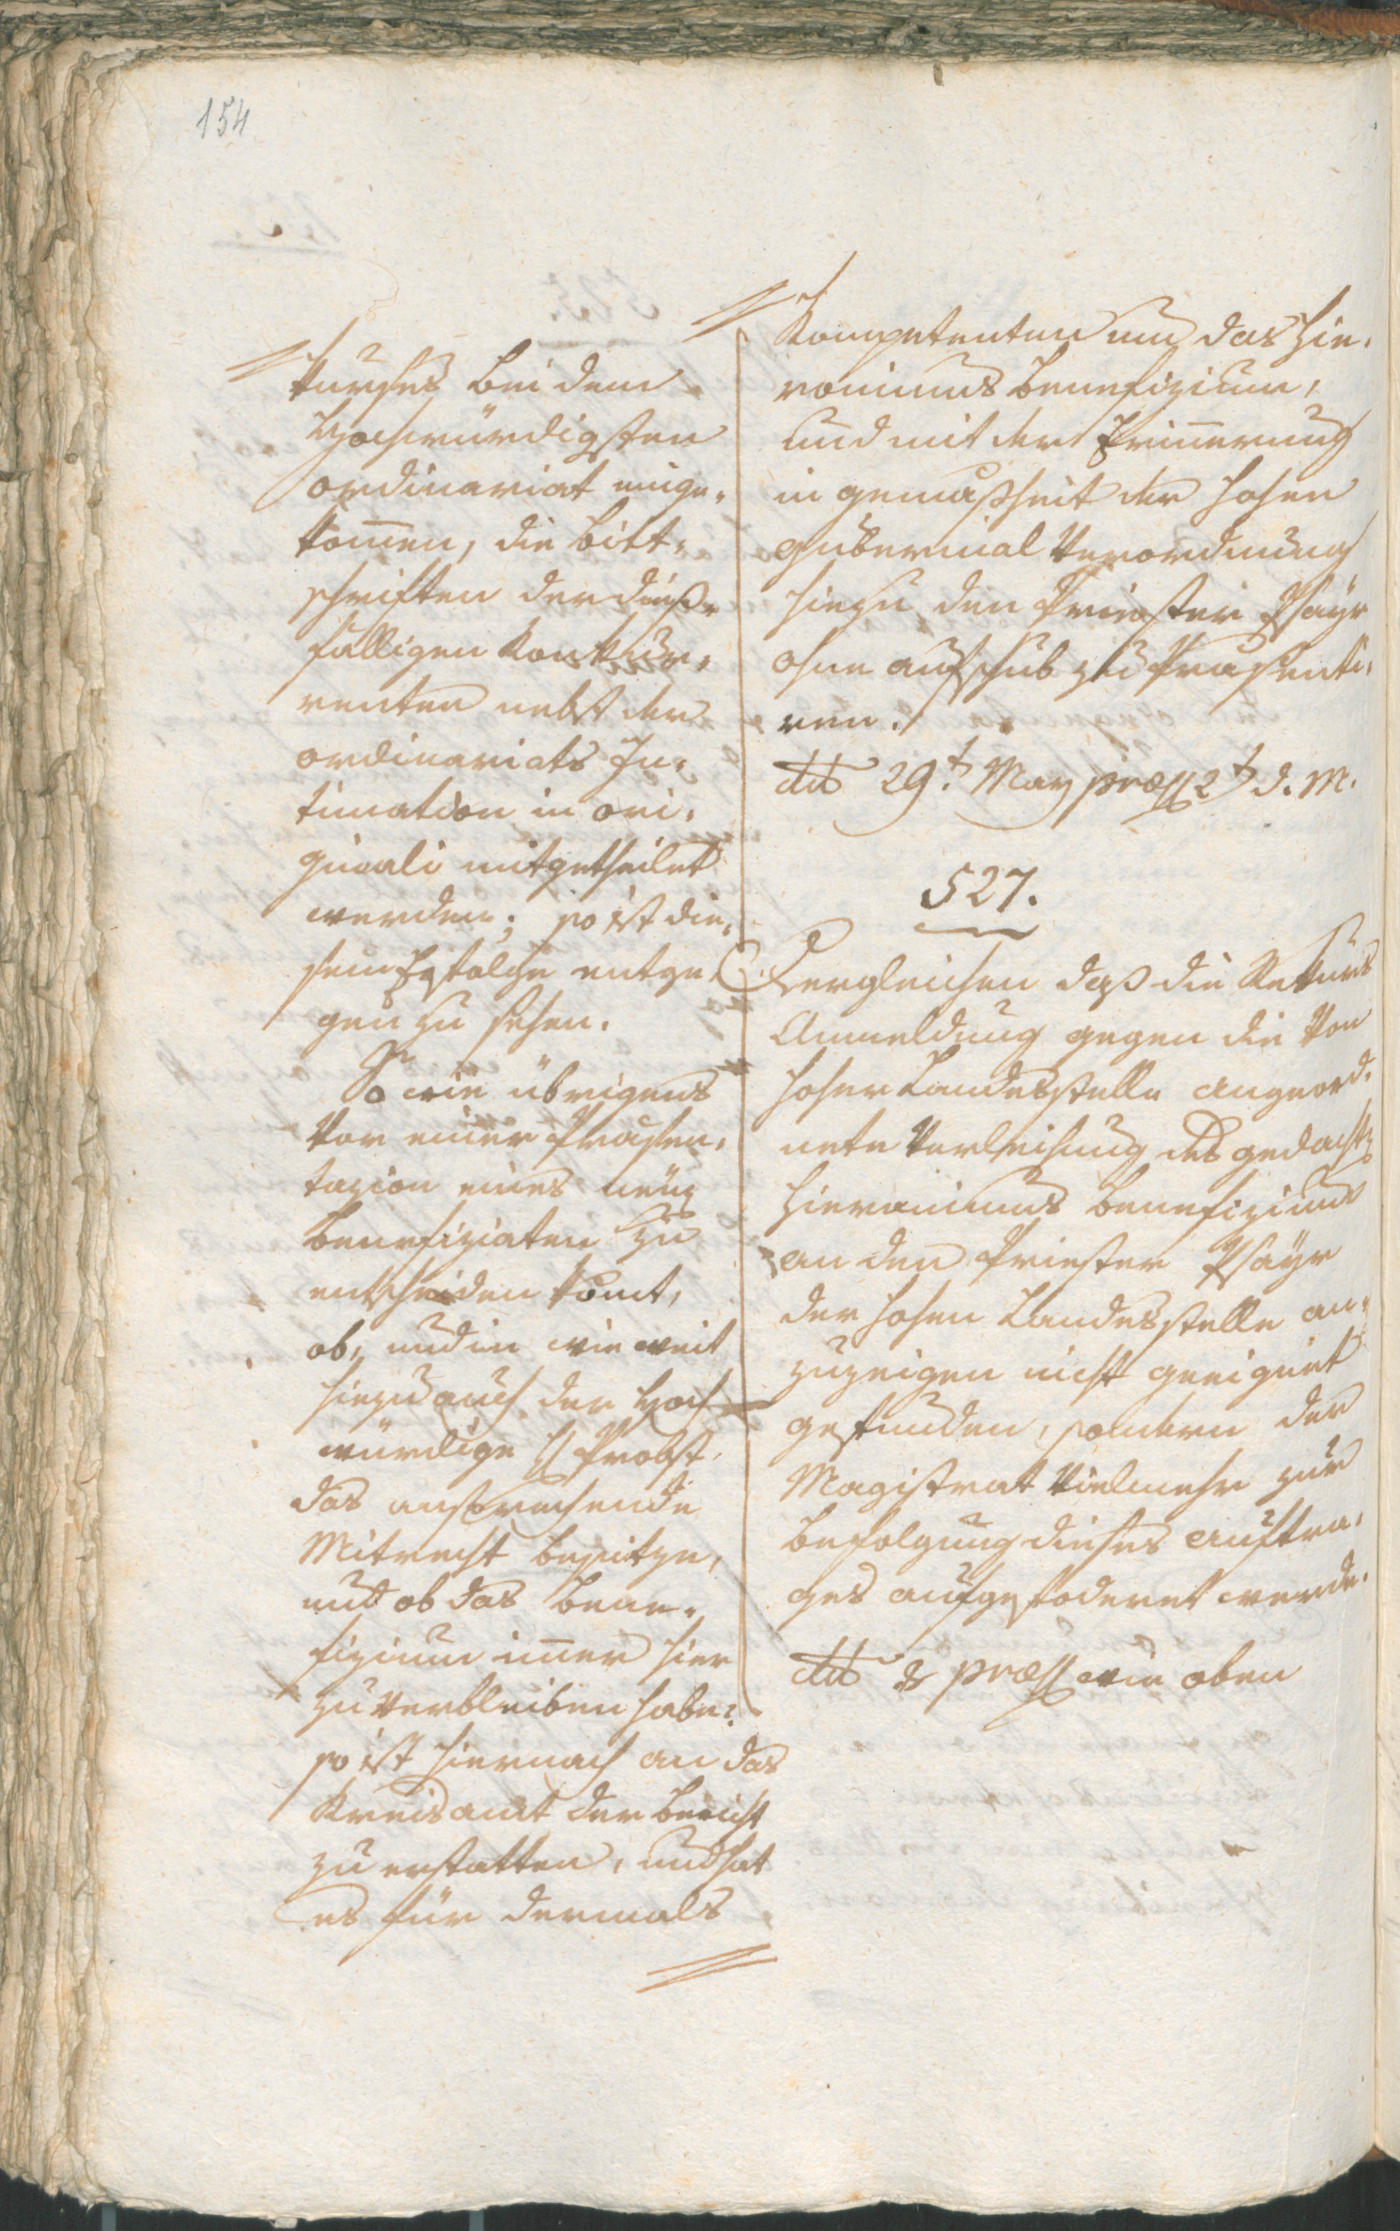 154
kurses bei dem
Hochwürdigsten
ordinariat einge-
kom̄en, die Bitt-
schriften der dieß-
fälligen Konkur-
renten nebst der
ordinariats In-
timation in ori-
ginali mitgetheilet
werden; so ist die-
sem Erfolge entge-
gen zu sehen.
So wie übrigens
vor einer Präsen-
tazion eines neüen
Benefiziaten zu
entscheiden kömt,
ob, und in wie weit
hiezu auch der Hoch
würdige H Probst
das ansprechende
Mitrecht besitze,
und ob das Bene-
fizium im̄er hier
zu verbleiben habe;
so ist hiernach an das
Kreisamt der Bericht
zu erstatten, und hat
es für dermals
Kompetenten um das Hie-
ronimus Benefizium,
und mit der Erin̄erung
in gemäßheit der hohen
Gubernial Verordnung
hiezu den Priester Psayr
ohne aufschub zu Präsenti-
ren.
dto 29.t May præs 2t d. M.
527.
Dergleichen daß die Rekurs
Anmeldung gegen die von
hoher Landesstelle angeord-
nete Verleihung des gedacht
Hieronimus Benefizium
an den Priester Psayr
der hohen Landesstelle an-
zuzeigen nicht geeignet
gefunden, sondern der
Magistrat vielmehr zur
befolgung dieses auftra-
ges aufgefoderet werde.
dto & præs wie oben